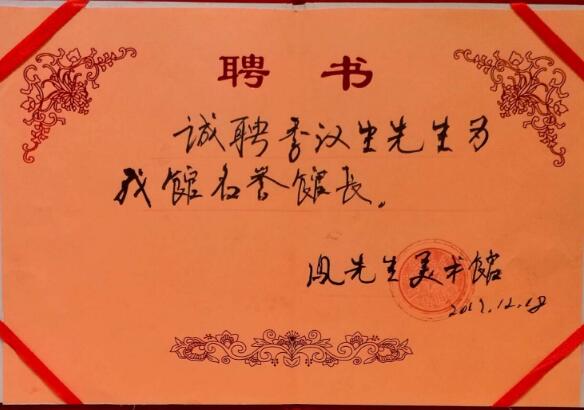 聘书
诚聘季汉生先生为
我馆名誉馆长。
凤先生美术馆
2017.12.18